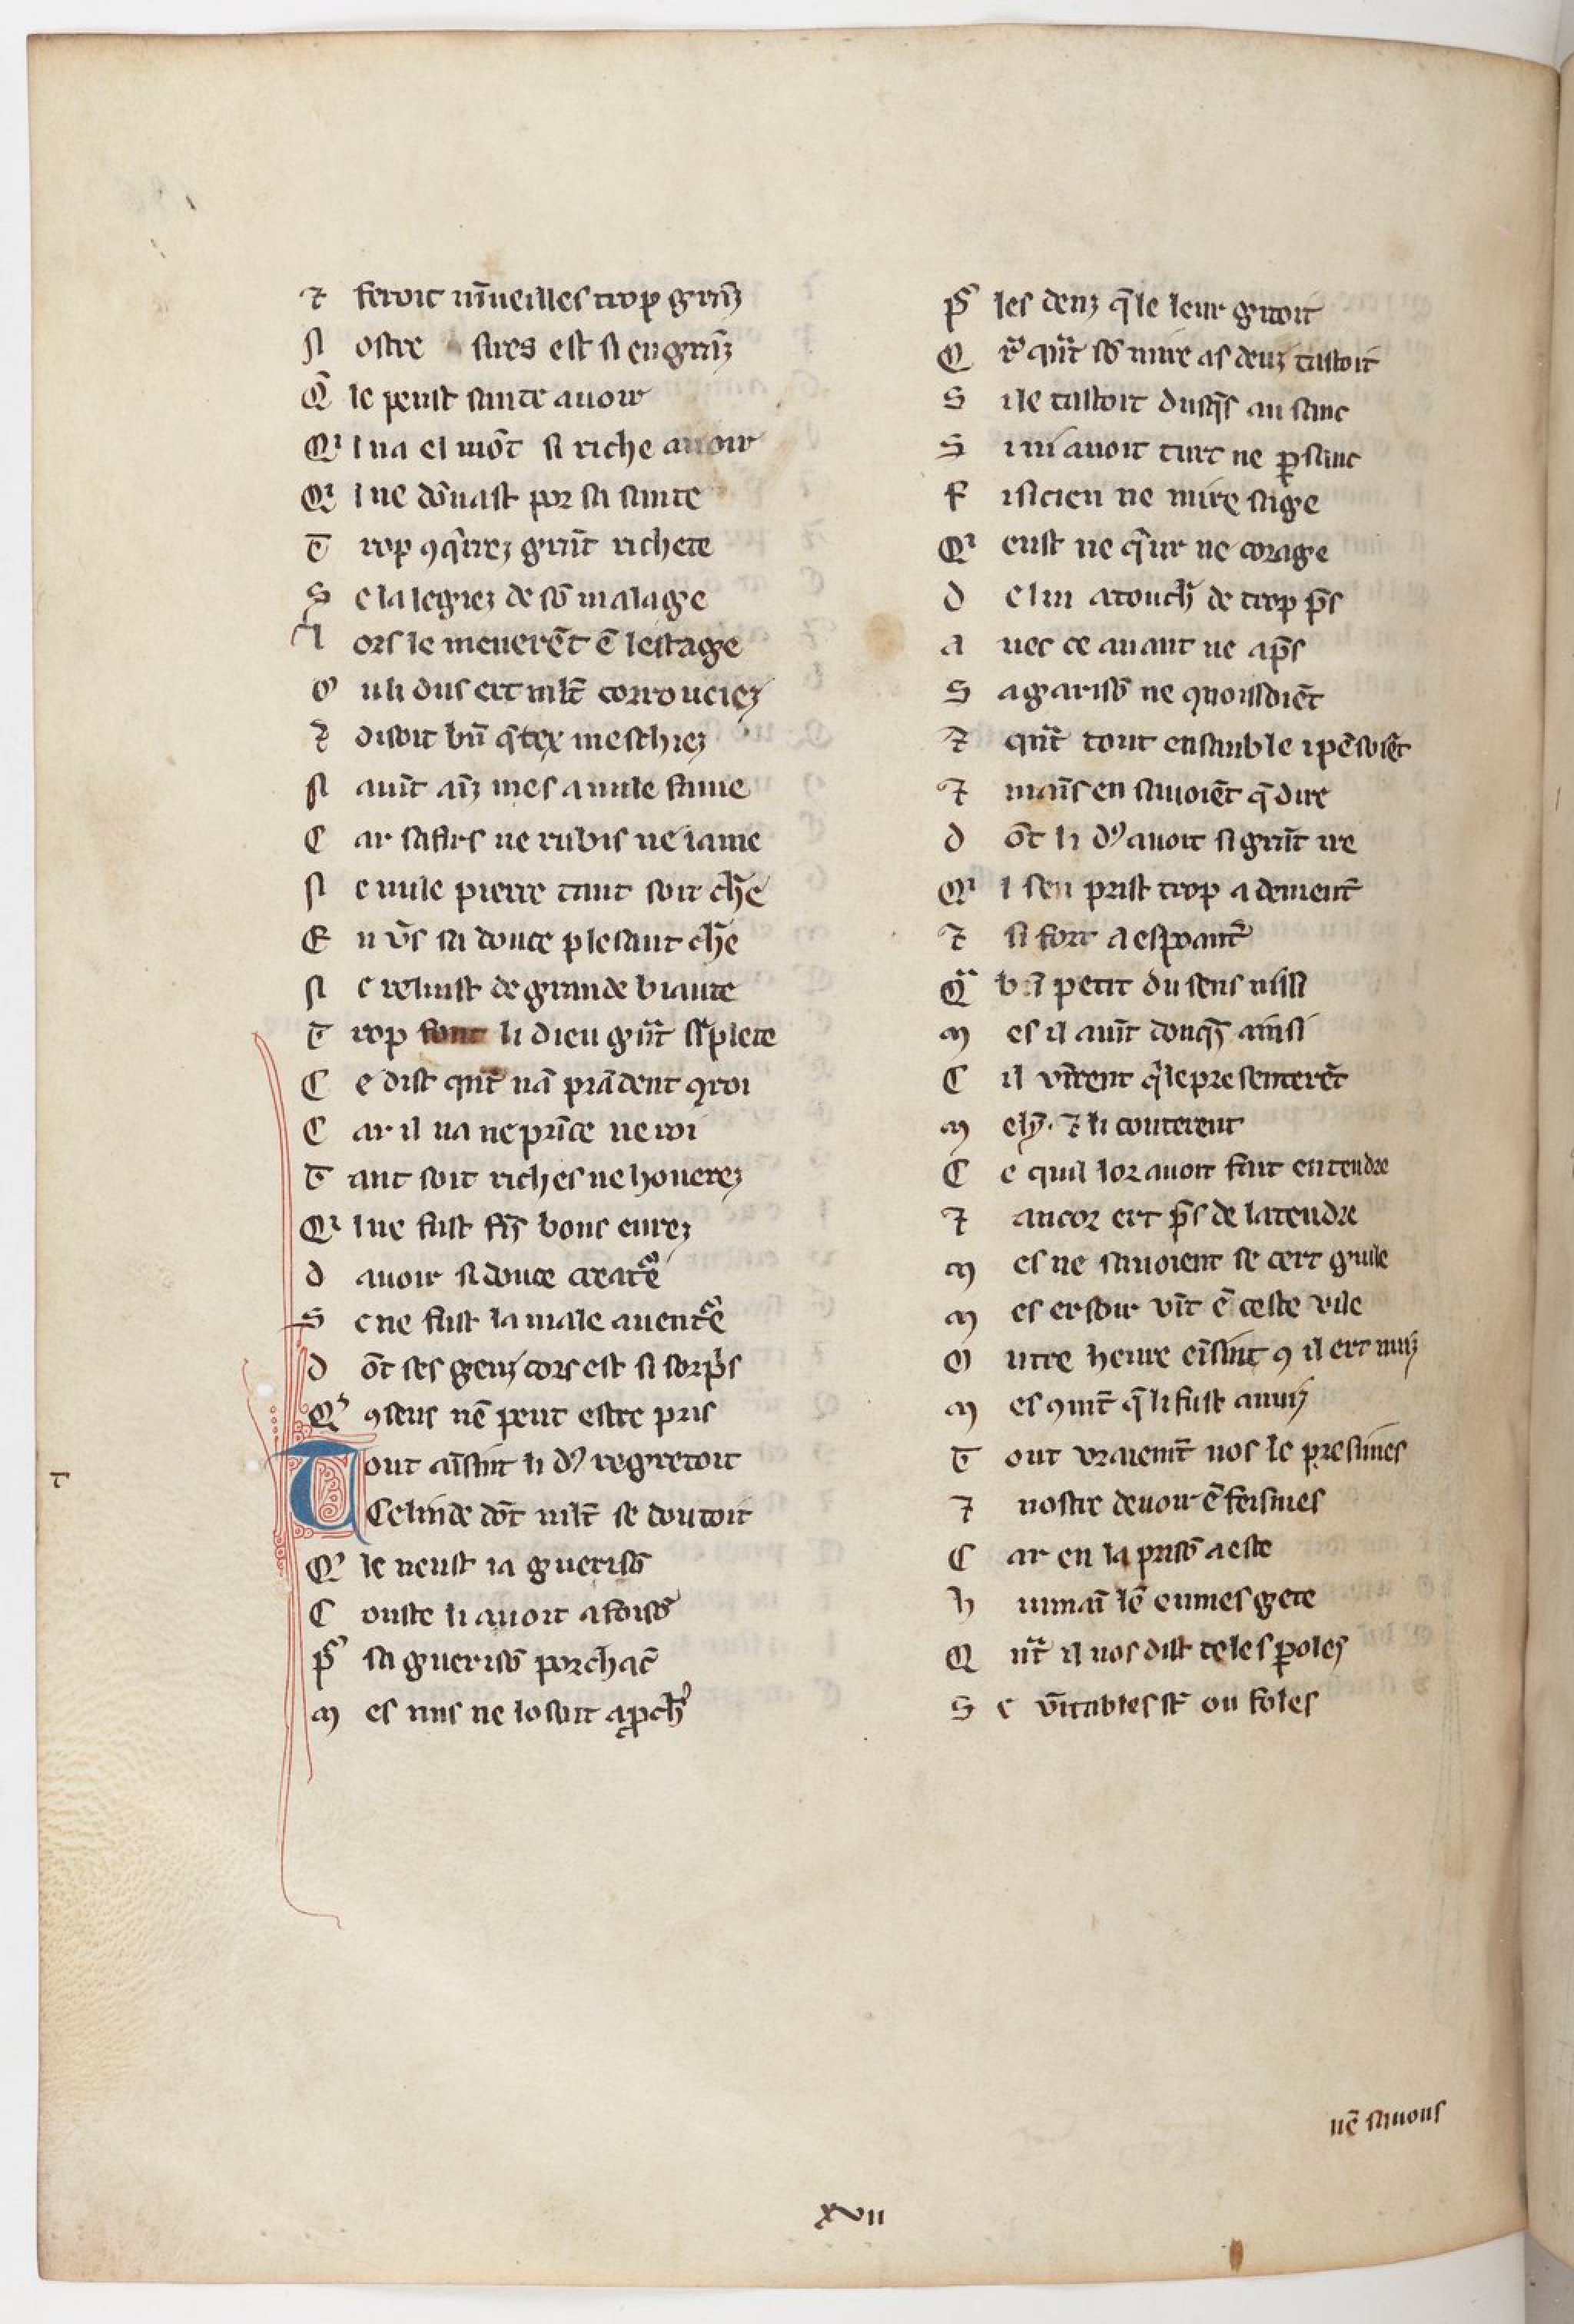 ⁊ feroit m̃ueilles trop grãz
N ostre sires est si engrãz
Q̃ le peust sante auoir
Qͥ l na el mõt si riche auoir
Qͥ l ne dõnast por sa sante
T rop ꝯq̃rrez grãt richete
S e lalegiez de sõ malage
L ors le menerẽt ẽ lestage
O u li dus ert ml̃t corrouciez
⁊ disoit bñ q̃ tex meschiez
N auĩt aĩz mes a nule fame
C ar safirs ne rubis ne iame
N e nule pierre tant soit ch̃e
E n ṽs sa douce plesant ch̃e
N e reluist de grande biaute
T rop font li dieu grãt
C e dist qãt nã prãdent ꝯroi
C ar il na ne prĩce ne roi
T ant soit riches ne honerez
Qͥ l ne fust fis bons eurez
D auoir si douce creatẽ
S e ne fust la male auentẽ
D õt ses genz cors est si sorpͥs
Qͥ ꝯseus nẽ peut estre pris
T out aĩsint li dꝰ regretoit
Celinde dõt ml̃t se doutoit
Qͥ le neust ia guerisõ
C ouste li auoit a foisõ
P̃ sa guerisõ porchac̃
M es nus ne losoit aꝓch̃
t
P̃ les denz q̃le leur gitoit
Q r̃ qãt sõ mire as denz tastoit
S ile tastoit dusq̃s au sanc
S i ni auoit tirt ne ꝑsanc
F isicien ne mire sage
Qͥ eust ne q̃ur ne corage
D e lui atouch̃ de trop p̃s
A uec ce auant ne ap̃s
S a garisõ ne ꝯnoissoiẽt
⁊ qãt tout ensanble i pẽsoiẽt
⁊ maĩs en sauoiẽt q̃ dire
D õt li dꝰ auoit si grãt ire
Qͥ l sen prist trop a dement̃
⁊ si fort a espoant̃
Qᷓ bñ petit du sens nissi
M es il auĩt donq̃s ainsi
C il vĩrent q̃ le presenterẽt
M elỹ. ⁊ li conterent
C e quil lor auoit fait entendre
⁊ ancor ert p̃s de latendre
M es ne sauoient se cert guile
M es ersoir vĩt ẽ ceste vile
O utre heure eĩsint ꝯ il ert nuiz
M es ꝯmt̃ q̃ li fust anuiz
T out vraiemt̃ nos le presimes
⁊ nostre deuoir ẽ feismes
C ar en la prisõ a este
H uimaĩ lẽ eumes gete
Q ãt il nos dist teles ꝑoles
S e ṽitables st̃ ou foles
nẽ sauons
xvii